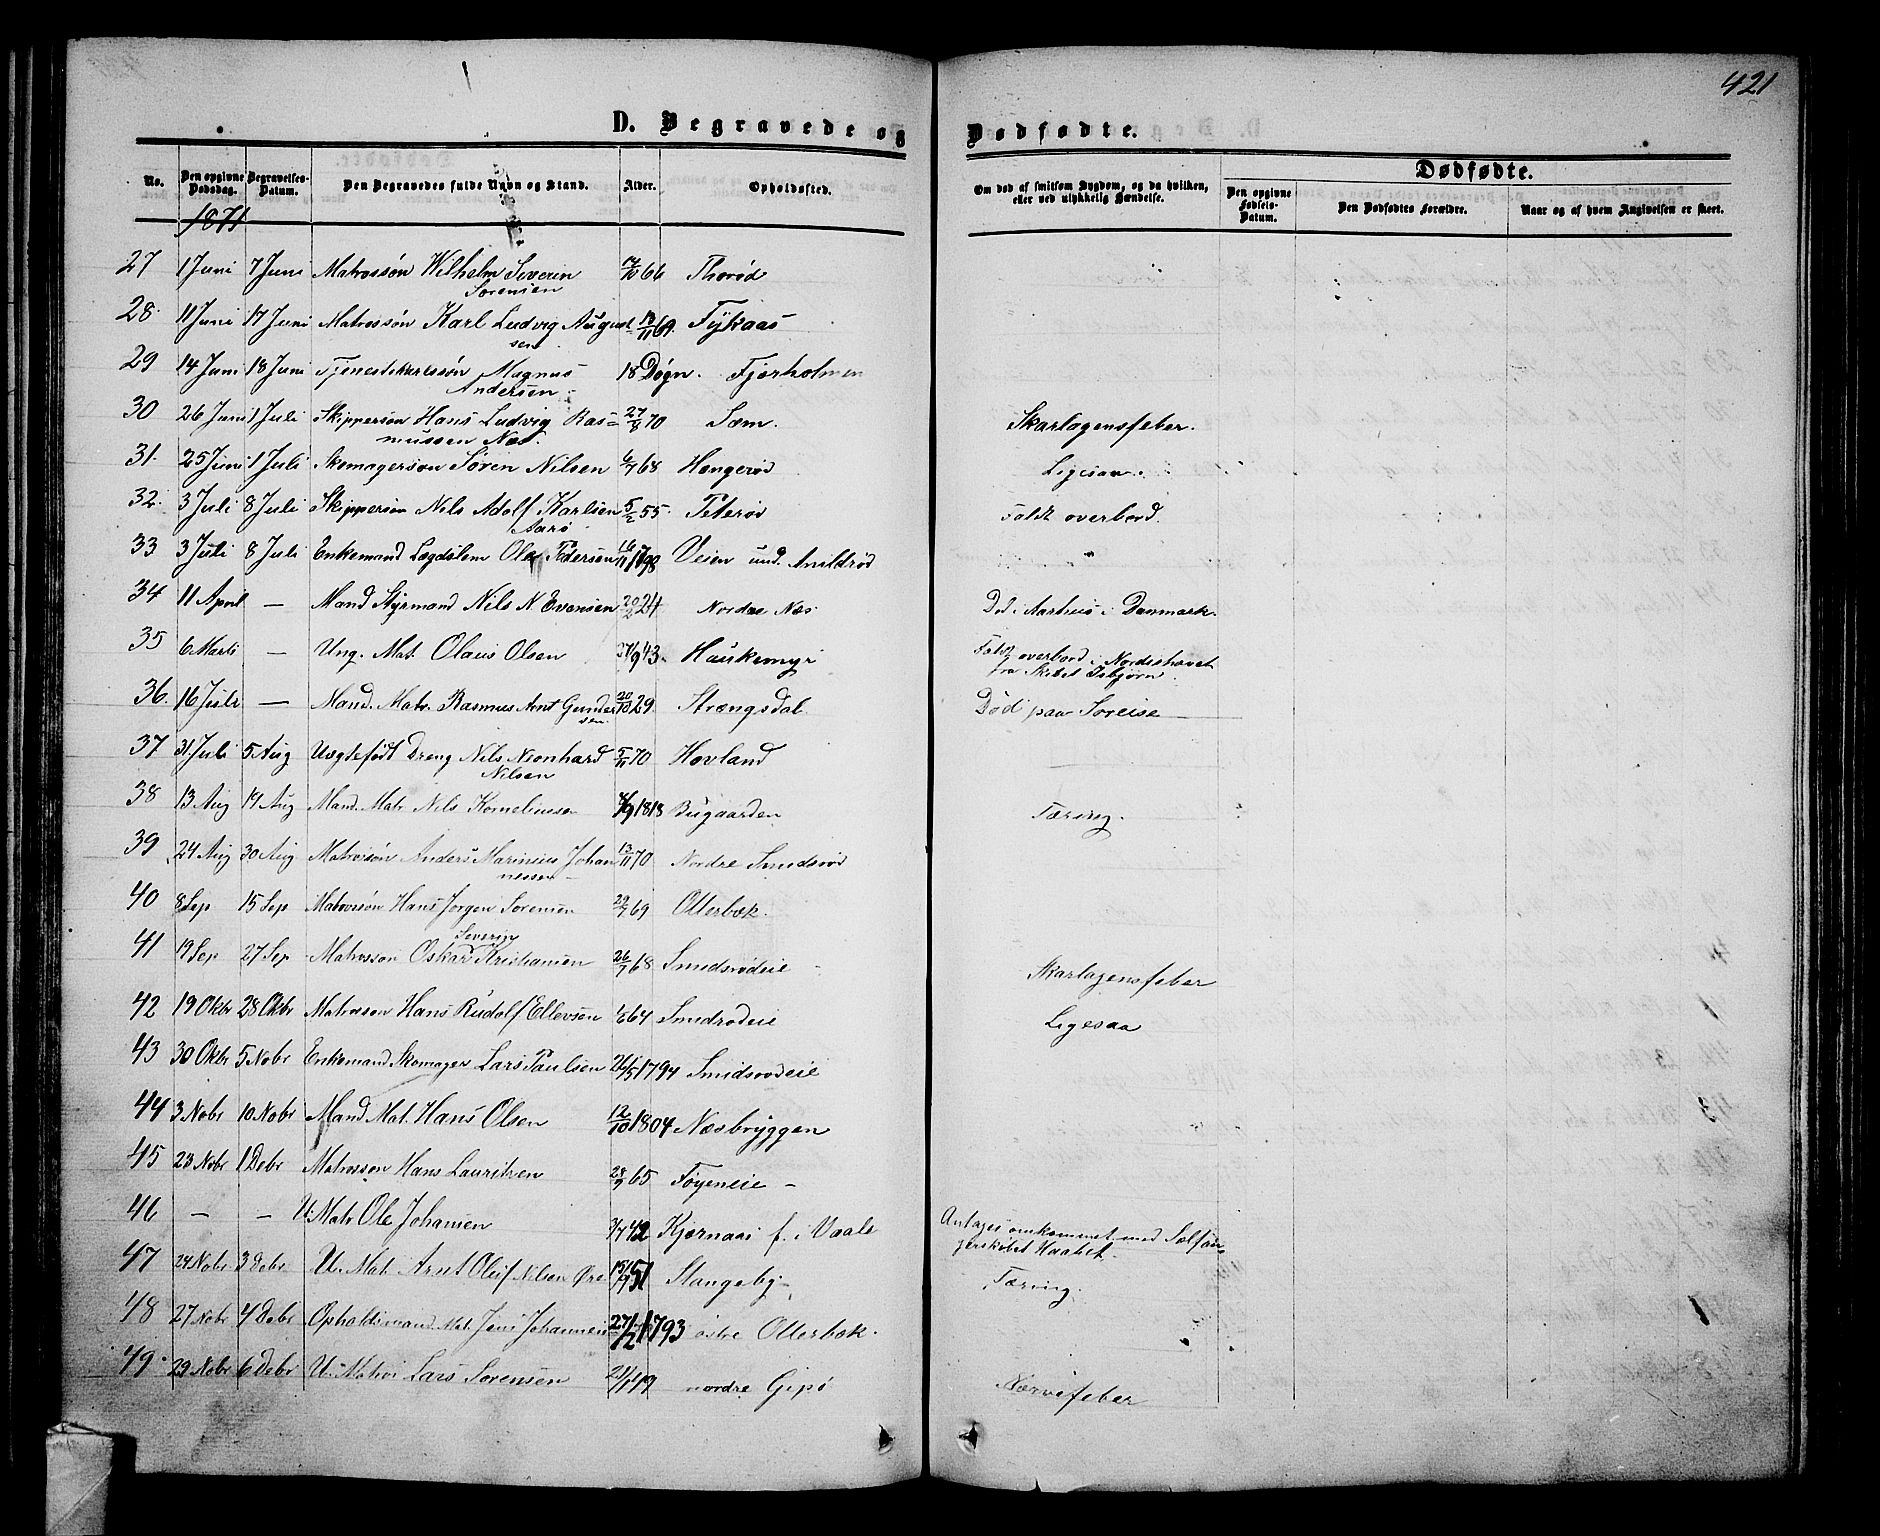 421
D. Begravede og Dødfødte.
No. Den opgivne Dødsdag. Begravelses-Datum. Den Begravedes fulde Navn og Stand. Alder. Opholdssted. Om død af smitsom Sygdom, og da hvilken, eller ved ulykkelig Hændelse. Dødfødte.
Den opgivne Fødsels-Datum. Den Dødfødtes Forældre. Naar og af hvem Angivelsen er skeet.
1871
27 1 Juni 7 Juni Matrossøn Wilhelm Severin 66 Thorød
Sørensen
28. 11 Juni 17 Juni Matrossøn Karl Ludvig August 69. Fykaas
sen
29 14 Juni 18 Juni Tjenestekarlssøn Magnus 18 Døgn. Fjerholmen
Andersen
30 26 Juni 1 Juli Skippersøn Hans Ludvig Ras= 27/8 70 Sæm. Skarlagensfeber.
mussen Næs.
31. 25 Juni 1 Juli Skomagersøn Søren Nilsen 6/7 68 Hengerød Ligesaa.
32. 3 Juli 8 Juli Skippersøn Nils Adolf Karlsen 5/2 55. Peterød Faldt overbord.
Aarø
33 3 Juli 8 Juli Enkemand Lægdslem Ole Pedersen 16/11 1798 Veien und. Anildrød
34 11 April — Mand Styrmand Nils N Evensen 20/2 24 Nordre Næs Død i Aarhuus i Danmark.
35 6 Marts — Ung. Mat. Olaus Olsen 43. Haukemyr Faldt overbord i Nordishavet
fra Skibet Isbjørn.
36. 16 Juli — Mand. Matr. Rasmus Arnt Gunder 20/10 29 Strængsdal Død paa Søreise
sen
37 31. Juli 5 Aug Uægtefødt Dreng Nils Leonhard 5/11 70 Hovland
Nilsen
38 13 Aug 19 Aug Mand. Matr Nils Korneliussen 1818 Bugaarden Tæring.
39 24 Aug 30 Aug Matrossøn Anders Marinius Johan 13/11 70 Nordre Smidsrød
nessen
40 8 Sep 15 Sep Matrossøn Hans Jørgen Sørensen 29/7 69 Otterbæk.
Severin
41 19 Sep 27 Sep Matrossøn Oskar Kristiansen 26/7 68 Smidsrødeie Skarlagensfeber
42 19 Okbr 28 Okbr Matrossøn Hans Rudolf Ellevsen 1/6 64 Smidsrødeie Ligesaa
43 30 Okbr 5 Nobr Enkemand Skomager Lars Paulsen 1794 Smidsrødeie
44 3 Nobr 10 Nobr Mand Mat. Hans Olsen 12/10 1804 Næsbryggen
45 23 Nobr 1 Debr Matrossøn Hans Lauritzen 28/9 65 Føyeneie
46 — — U. Matr Ole Johansen 3/7 42 Kjærnaas f. i Vaale Antages omkommet med Sælfan=
gerskibet Haabet.
47 24 Nobr 3 Debr U. Mat. Arnt Oluf Nilsen Øre 15/9 51 Stangeby Tæring.
48 27 Nobr 4 Debr Opholdsmand Mat. Jens Johannesen 27/12 1793 østre Otterbæk.
49 29 Nobr 6 Debr U. Matros Lars Sørensen 49 nordre Gipø Nervefeber